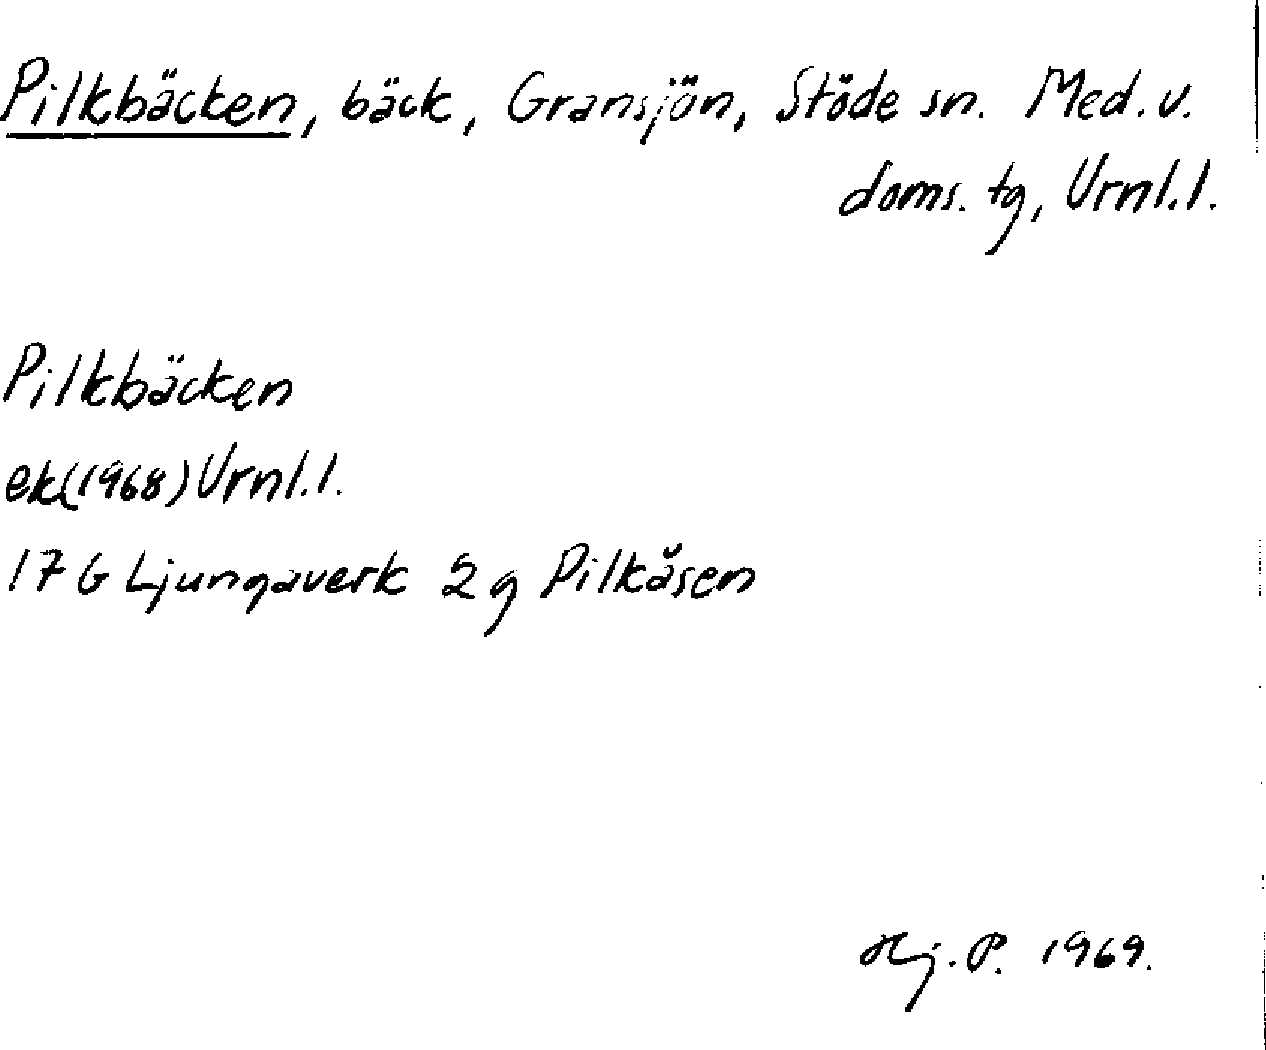 Pilkbäcken, bäck, Gransjön, Stöde sn. Med. v.
doms. tg, Vrnl.l.
Pilkbäcken
ek(1968) Vrnl.l.
17 G Ljungaverk 2 g Pilkåsen
Hj. P. 1969.